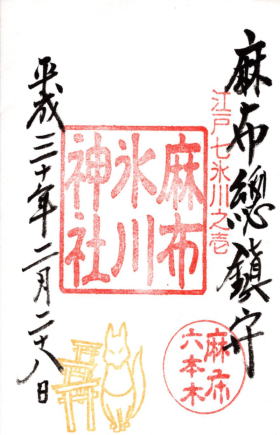 麻布總鎮守
江戸七氷川之壱
麻布
氷川
神社
平成三十年二月二十八日
麻布
六本木